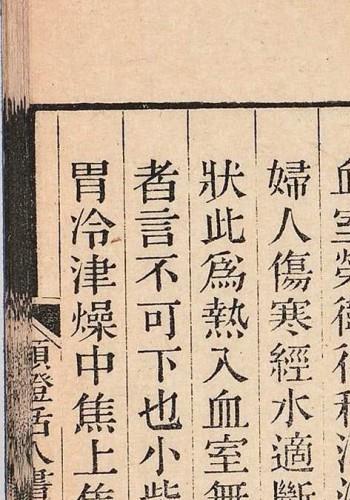 血室榮衛
婦人傷寒經水適斷
狀此爲熱入血室無
者言不可下也小柴
胃冷津燥中焦上焦
類證活人書